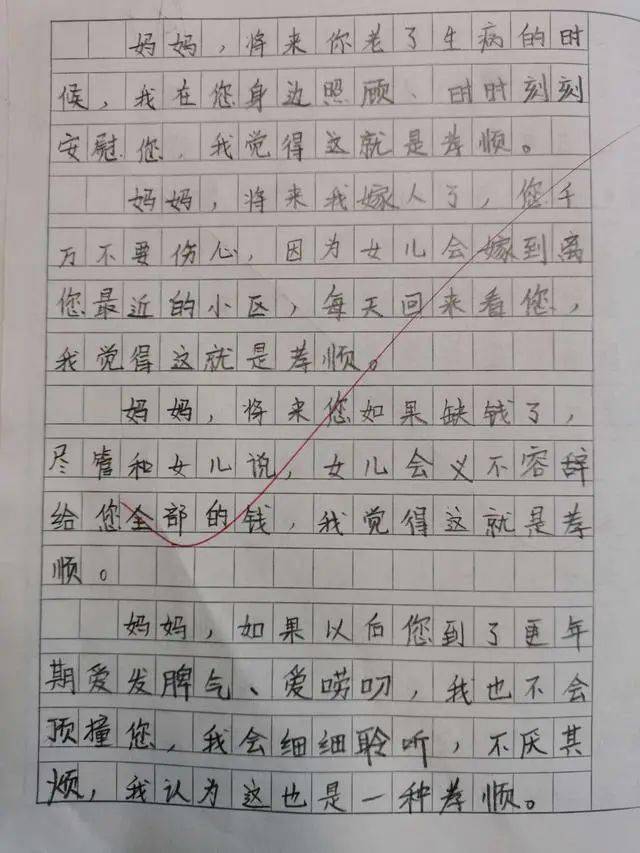 妈妈，将来你老了生病的时
候，我在您身边照顾、时时刻刻
安慰您，我觉得这就是孝顺。
妈妈，将来我嫁人了，您千
万不要伤心，因为女儿会嫁到离
您最近的小区，每天回来看您，
我觉得这就是孝顺。
妈妈，将来您如果缺钱了，
尽管和女儿说，女儿会义不容辞
给您全部的钱，我觉得这就是孝
顺。
妈妈，如果以后您到了更年
期爱发脾气、爱唠叨，我也不会
顶撞您，我会细细聆听，不厌其
烦，我认为这也是一种孝顺。